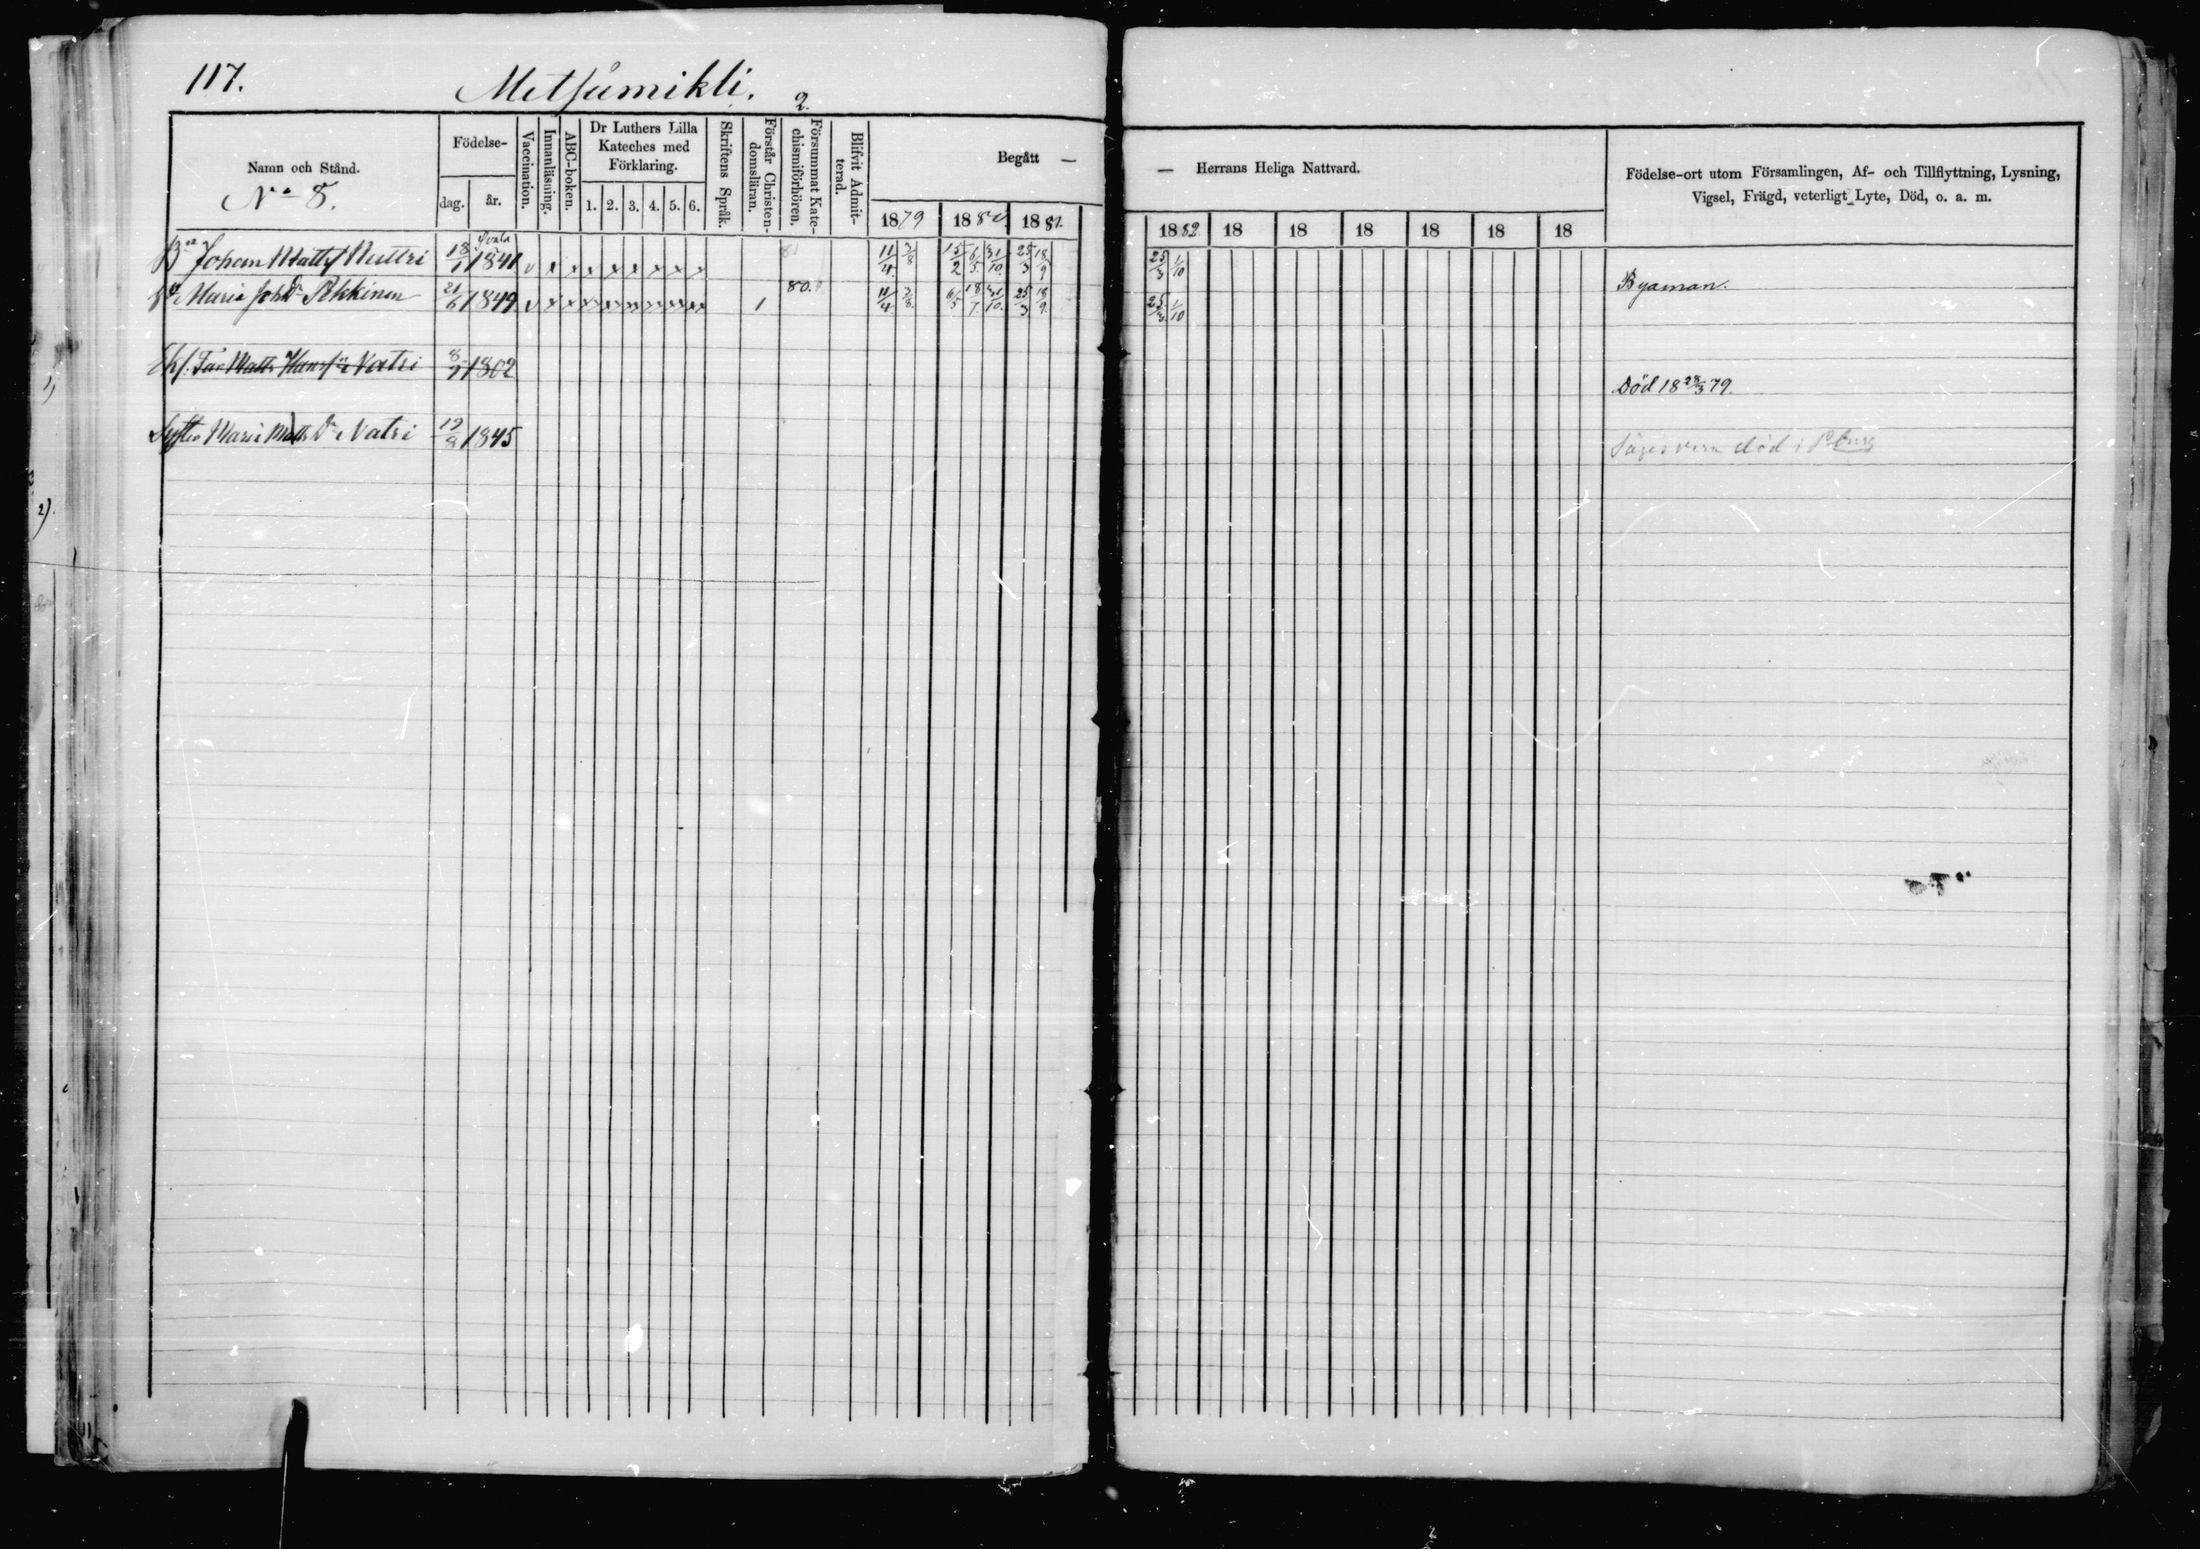 117.
Metsämikli.
2.
Namn och Stånd.
No 8.
Födelse-
dag.
år.
Vaccination.
Innanläsning.
ABC-boken.
Dr Luthers Lilla
Kateches med
Förklaring.
1. 2. 3. 4. 5. 6.
Skriftens Språk.
Förstår Christen-
domsläran.
Försummat Kate-
chismiförhören.
Blifvit Admit-
terad.
Begått —
1879 1880. 1881.
— Herrans Heliga Nattvard.
1882 18 18 18 18 18 18
Födelse-ort utom Församlingen, Af- och Tillflyttning, Lysning,
Vigsel, Frägd, veterligt Lyte, Död, o. a. m.
Johan Matts 18/1 1841 v x x x x x x x x 11/4 3/8 15/2 6/5 31/10 25/3 18/9 25/3 1/10
Maria Joh Dr Pekkinen 21/6 1849 v x x x x x x x x 1 80. 11/4 3/8 6/5 18/7 31/10 25/3 18/9 25/3 1/10 Byaman.
Far Matts Hansson Natri 8/9 1802 Död 18 28/3 79.
Maria Matts Dr Natri 19/8 1845 död i